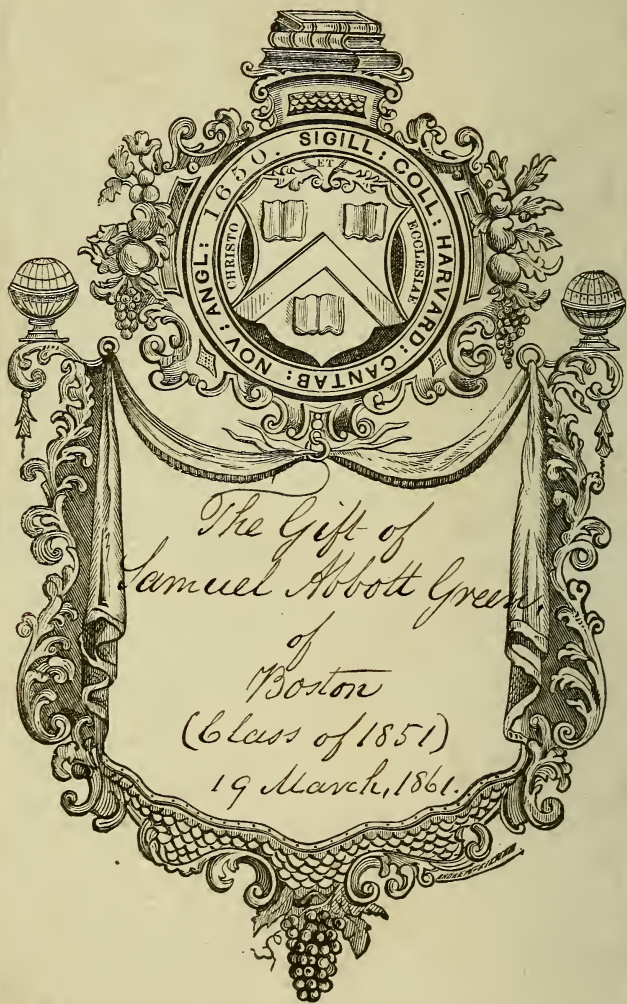 SIGILL: COLL: HARVARD: CANTAB: NOV: ANGL: 1650.
ET
CHRISTO
ECCLESIAE
The Gift of
Samuel Abbott Green,
of
Boston
(Class of 1851)
19 March, 1861.